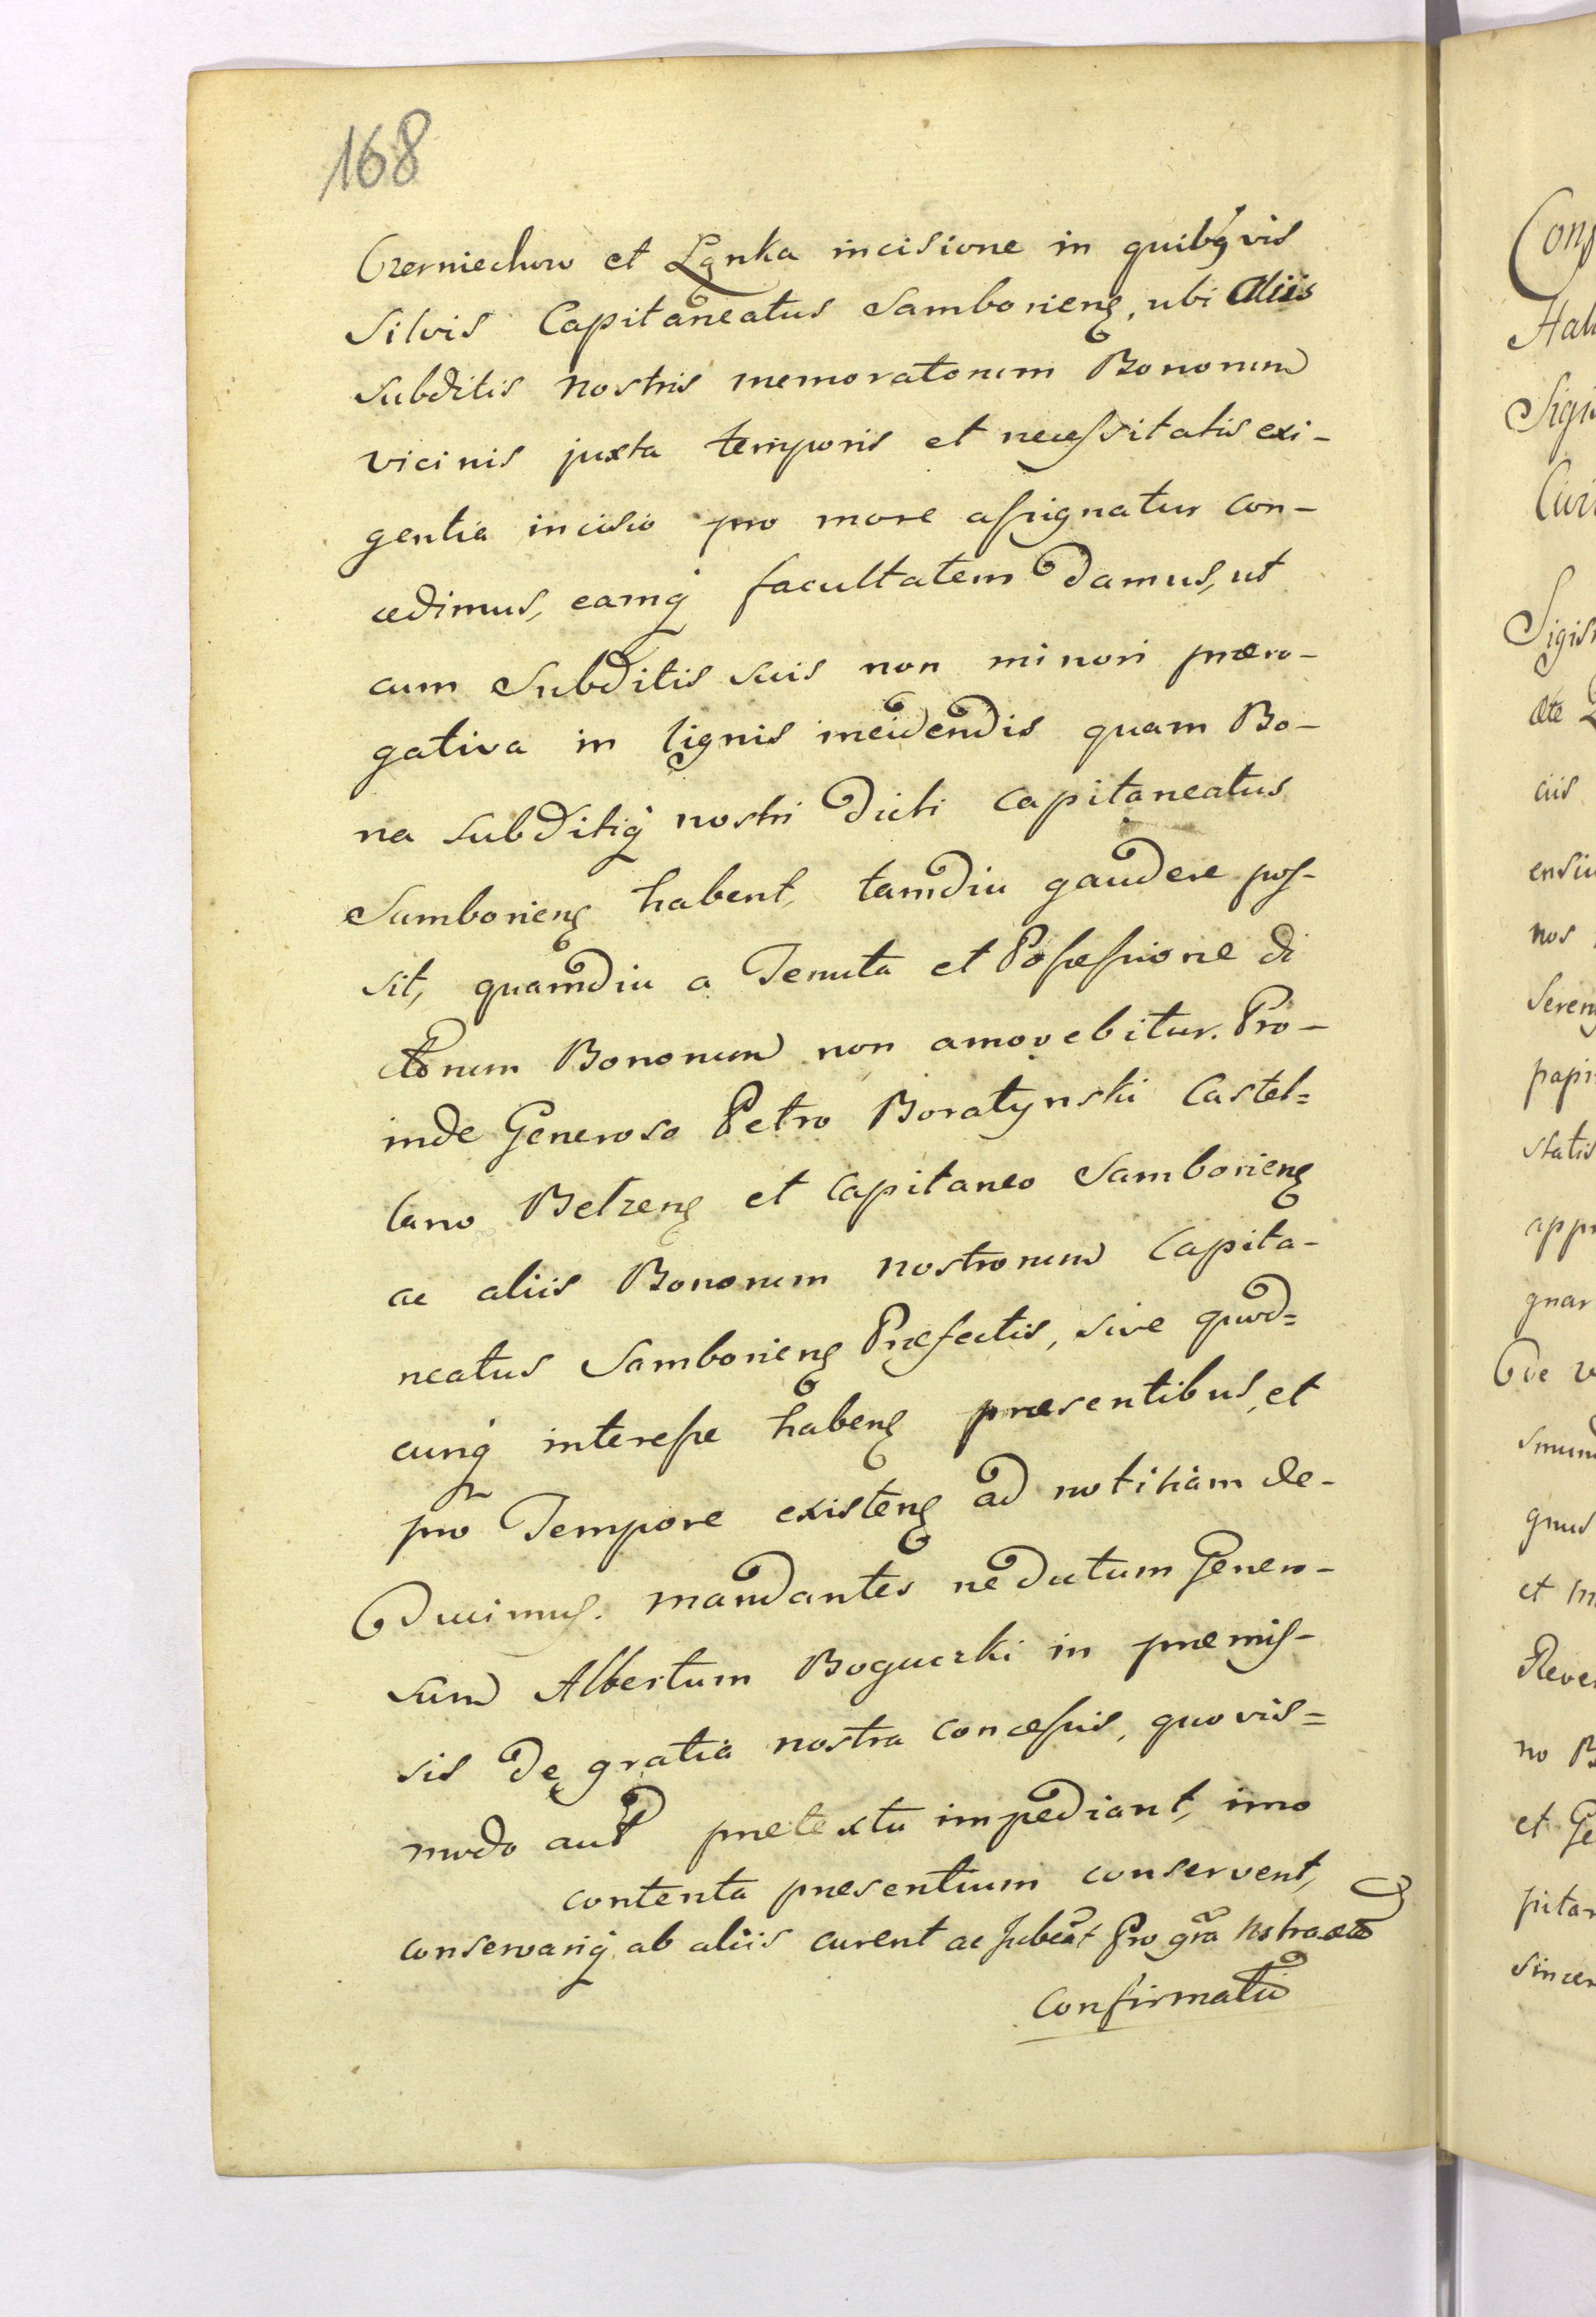 168
Czerniechow et Łąnka incisione in quibqvis
Silvis Capitaneatus Samborieng, ubi Aliis
subditis nostris memoratorum Bonorum
vicinis juxta temporis et necessitatis exi-
gentia incisio pro more assignatur con-
cedimus, eamq facultatem damus, ut
cum Subditis suis non minori præro-
gativa in lignis incidendis quam Bo-
na subditiq nostri dicti Capitaneatus
Samborieng habent, tamdiu gaudere pos-
sit, quamdiu a Tenuta et Possessione di
ctorum Bonorum non amovebitur. Pro-
inde Generoso Petro Boratynski Castel=
lano Belzeng et Capitaneo Samborieng
ac aliis Bonorum nostrorum Capita-
neatus Samborieng Præfectis, sive quod=
cunq interesse habeng præsentibus, et
pro Tempore existeng ad notitiam de-
ducimus. mandantes ne dictum Genero-
sum Albertum Boguczki in præmis-
sis de gratia nostra concessis, quovis=
modo aut prætextu impediant, imo
contenta præsentium conservent,
conservariq ab aliis curent ac jubeat Pro gra nostra etc
Confirmatio
Conf
Hali
Sigi
Civi
Sigis
æte
ciis
ensiu
nos
Seren
papi
statis
appr
gnar
de v
smun
gnus
et m
Reve
no B
et Ge
pitan
sincer